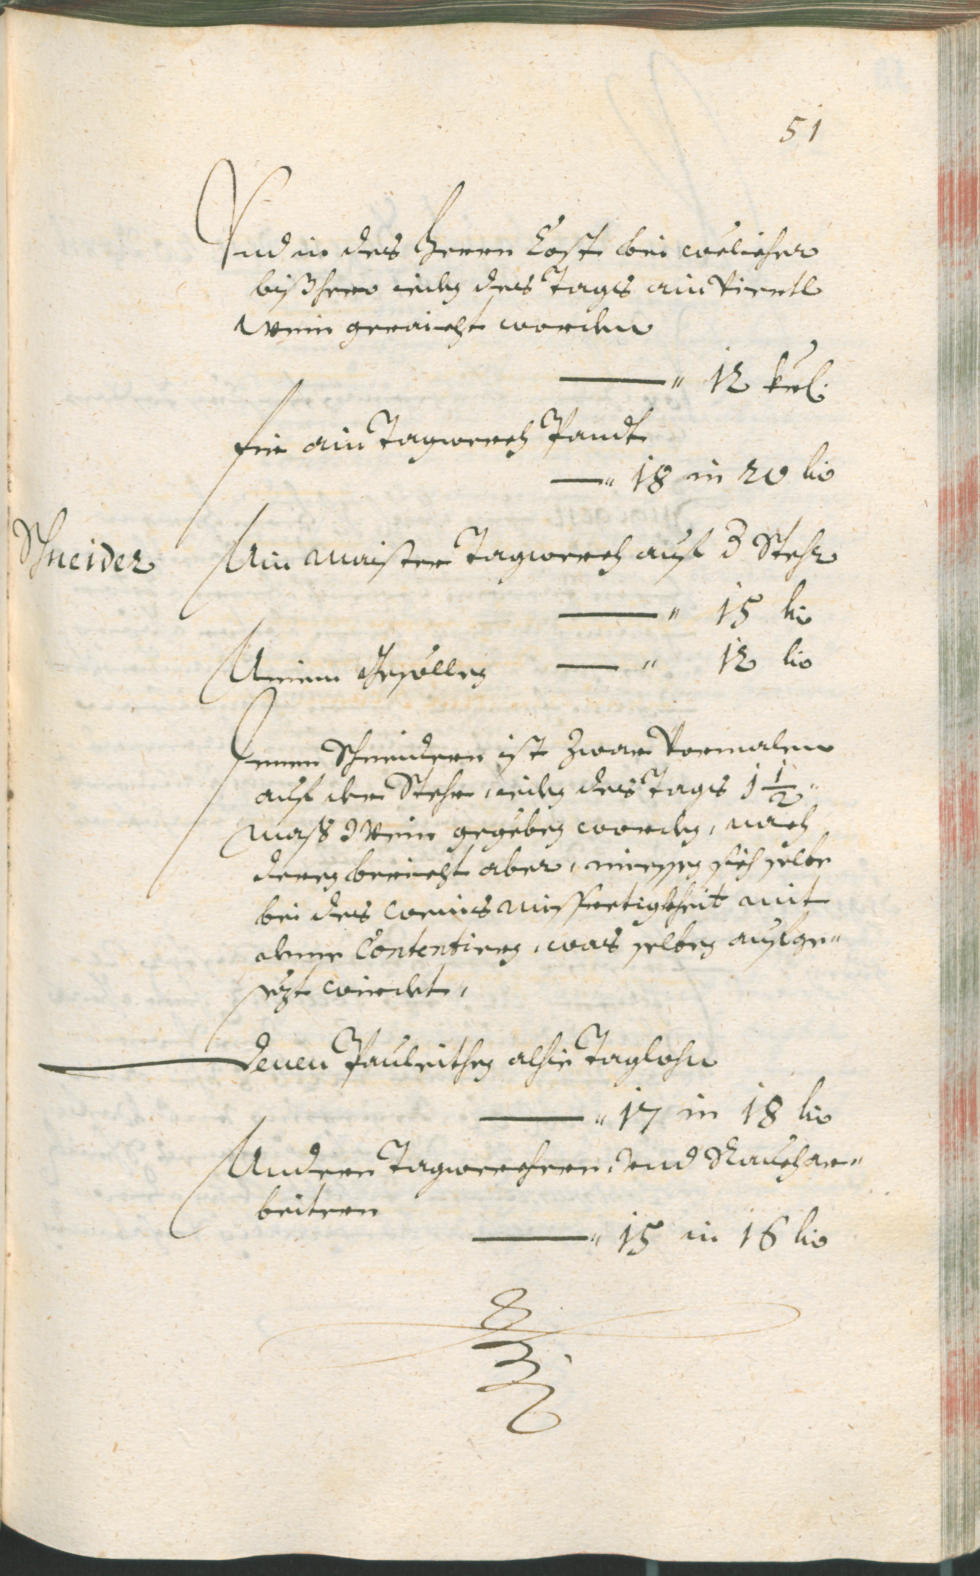 51
Und in des Herrn Cost bei welicher
bißhero iedeg des Tags ain Viertl
Wein geraicht worden
— " 12 krl:
Fir ain Tagwerch Pandt
— " 18 in 20 kr
Schneider
Ain Maister Tagwerch auf 3 Stehr
— " 15 kr
Ainem Gesölleg — " 12 kr
Denen Schneidern ist zwar Vormalen
auf der Stehr iedeg des Tags 1 1/2 "
Mass Wein gegebeg wordeg, nach
dereg bericht aber, miesseg sich selbe
bei des Weins mit
deme Contentiereg, was selbeg aufge"
sezt wirdet,
Denen Pauleitheg alhie Taglohn
— " 17 in 18 kr
Andern Tagwerchern, Vnd Rauchar"
beitern
— " 15 in 16 kr